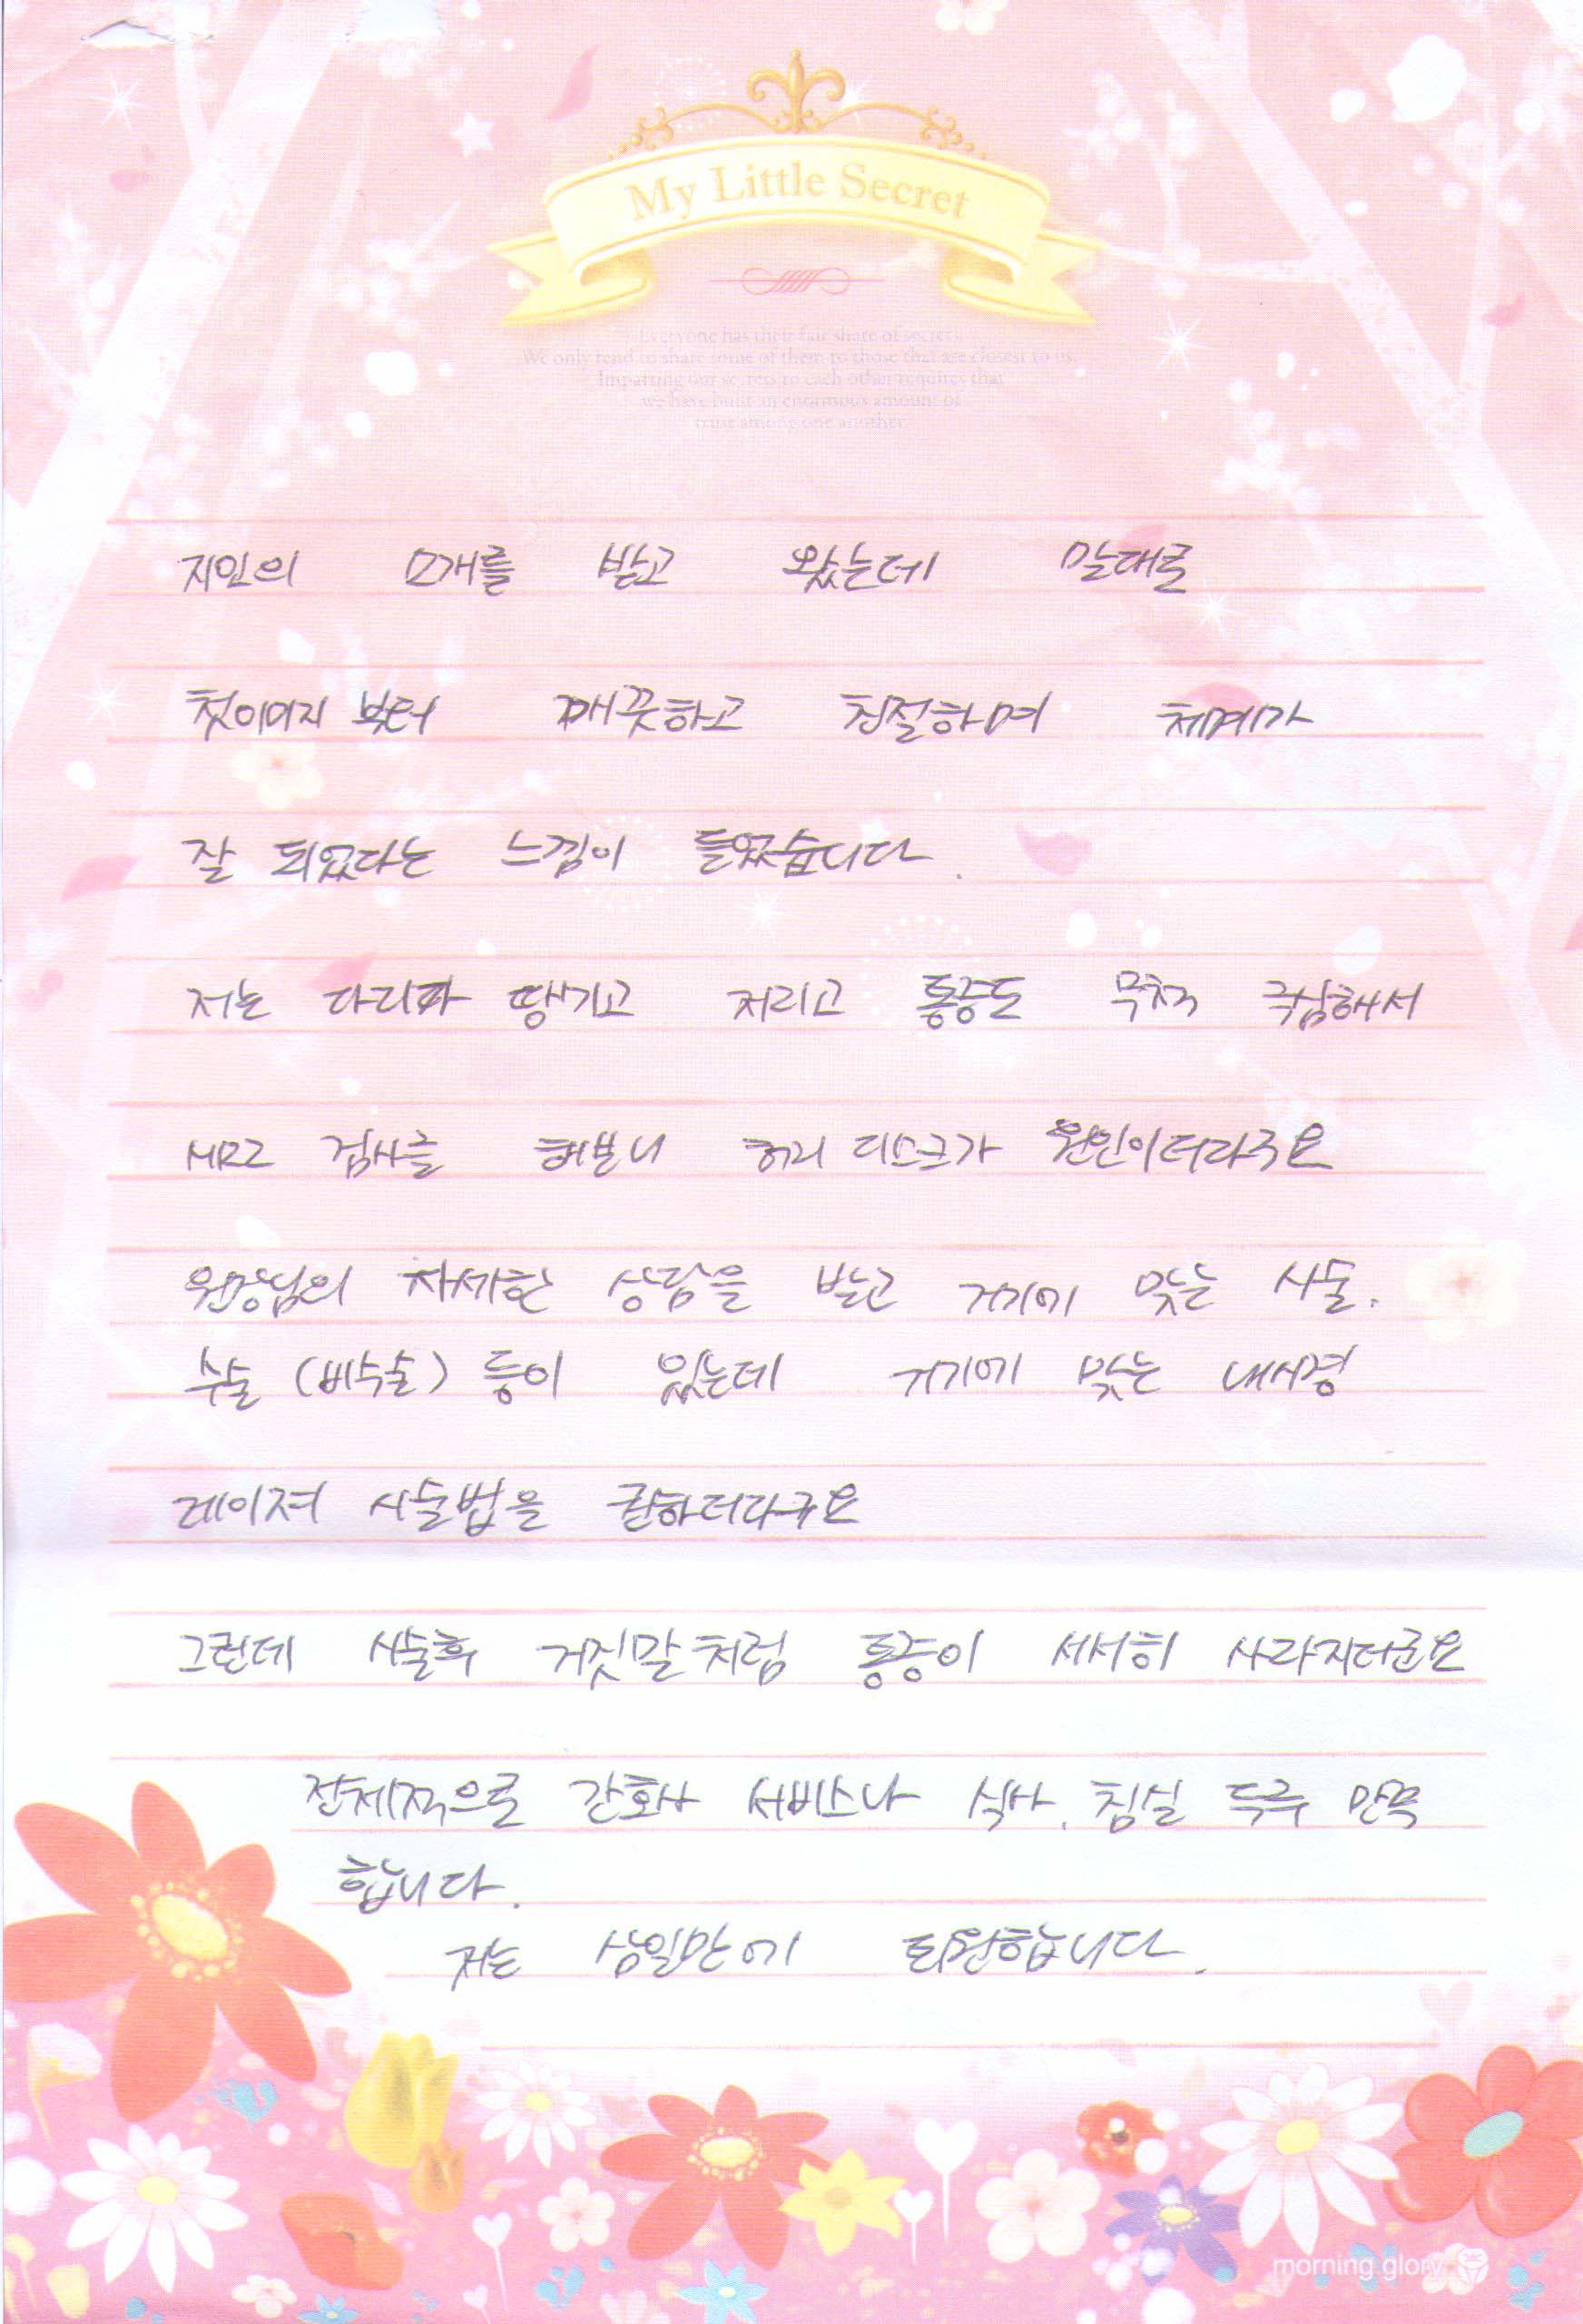 My Little Secret
Everyone has their fair share of secrets.
We only tend to share some of them to those that are closest to us.
Imparting our secrets to each other requires that
we have built an enormous amount of
trust among one another.
지인의 소개를 받고 왔는데 말대로
첫이미지 부터 깨끗하고 친절하며 체계가
잘 되있다는 느낌이 들었습니다.
저는 다리가 땡기고 저리고 통증도 무척 극심해서
MRI 검사를 해보니 허리 디스크가 원인이더라구요
원장님의 자세한 상담을 받고 거기에 맞는 시술.
수술 (비수술) 등이 있는데 거기에 맞는 내시경
레이져 시술법을 권하더라구요
그런데 시술후 거짓말처럼 통증이 서서히 사라지더군요
전체적으로 간호사 서비스나 식사. 침실 두루 만족
합니다.
저는 삼일만에 퇴원합니다.
morning glory